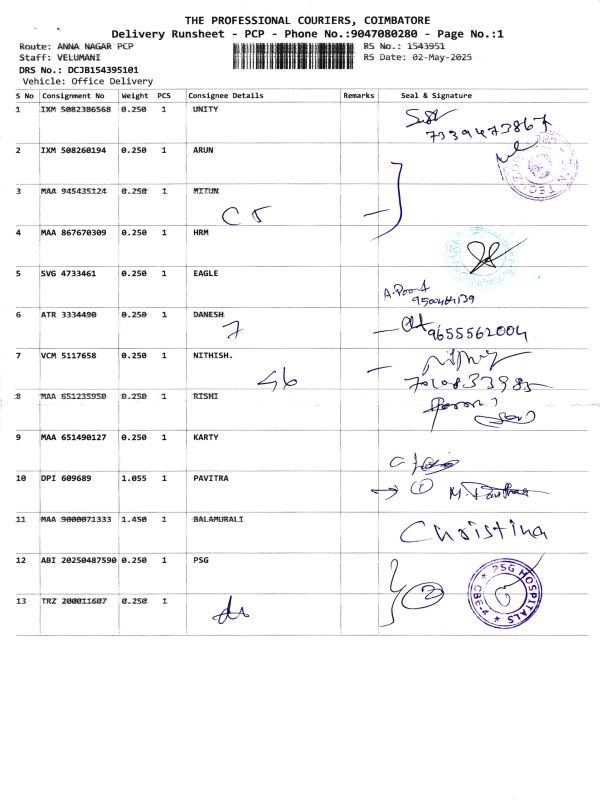 THE PROFESSIONAL COURIERS, COIMBATORE
Delivery Runsheet - PCP - Phone No.:9047080280 - Page No.:1
Route: ANNA NAGAR PCP
RS No.: 1543951
Staff: VELUMANI
RS Date: 02-May-2025
DRS No.: DCJB154395101
Vehicle: Office Delivery
S No Consignment No Weight PCS Consignee Details Remarks Seal & Signature
1 IXM 5082386568 0.250 1 UNITY
7339473867
2 IXM 508260194 0.250 1 ARUN
3 MAA 945435124 0.250 1 MITUN
4 MAA 867670309 0.250 1 HRM
5 SVG 4733461 0.250 1 EAGLE
6 ATR 3334490 0.250 1 DANESH
7
9655562004
7 VCM 5117658 0.250 1 NITHISH.
8 MAA 651235950 0.250 1 RISHI
9 MAA 651490127 0.250 1 KARTY
10 DPI 609689 1.055 1 PAVITRA
1
11 MAA 9000071333 1.450 1 BALAMURALI
Christina
12 ABI 20250487590 0.250 1 PSG
2
PSG HOSPITALS
CBE-4
13 TRZ 200011607 0.250 1